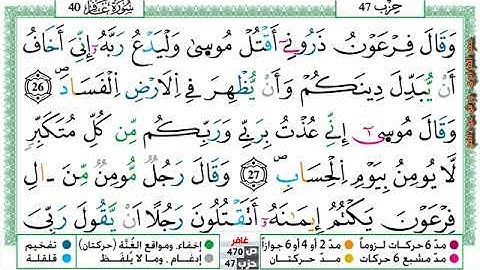 حِزْب 47
سُورَةُ غَافِر 40
وَقَالَ فِرْعَوْنُ ذَرُونِيَ أَقْتُلْ مُوسَىٰ وَلْيَدْعُ رَبَّهُۥٓ إِنِّيَ أَخَافُ
أَنْ يُّبَدِّلَ دِينَكُمْ وَأَنْ يُّظْهِرَ فِي اِلَارْضِ اِلْفَسَادَ 26
وَقَالَ مُوسَىٰٓ إِنِّي عُذْتُ بِرَبِّي وَرَبِّكُم مِّن كُلِّ مُتَكَبِّرٍ
لَّا يُومِنُ بِيَوْمِ اِلْحِسَابِ 27 وَقَالَ رَجُلٌ مُّومِنٌ مِّنَ ـَالِ
فِرْعَوْنَ يَكْتُمُ إِيمَٰنَهُۥٓ أَتَقْتُلُونَ رَجُلًا أَنْ يَّقُولَ رَبِّيَ
مدّ 6 حركات لزوماً مدّ 2 أو 4 أو 6 جوازاً غافر إخفاء، ومواقع الغُنَّة (حركتان) تفخيم
مدّ مشبع 6 حركات مدّ حركتان ص 470 حزب 47 إدغام، وما لا يُلفَظ قلقلة